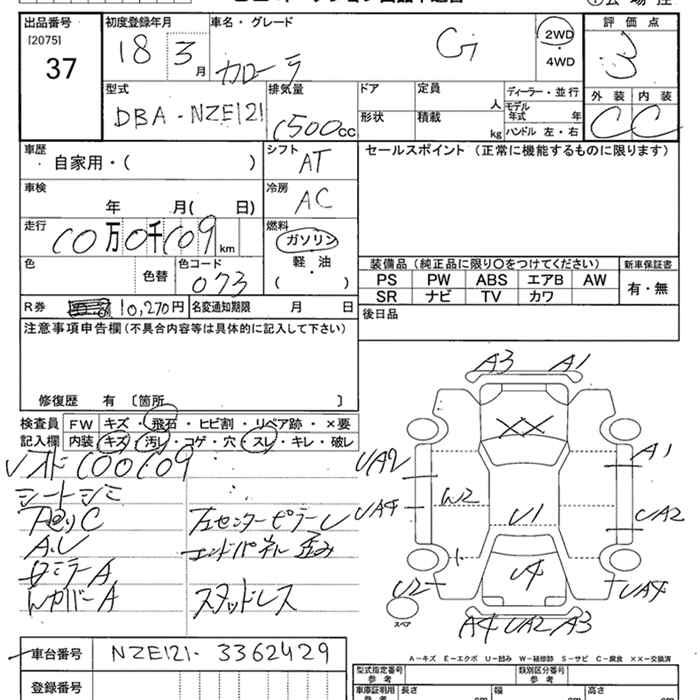 出品番号 初度登録年月 車名・グレード 評価点
[2075]
37 18 3月 カローラ G 2WD・4WD 3
型式 排気量 ドア 定員 ディーラー・並行 外装 内装
DBA-NZE121 1500cc 人 モデル年式 年 C C
形状 積載 kg ハンドル 左・右
車歴 シフト セールスポイント(正常に機能するものに限ります)
自家用・( ) AT
車検 冷房
年 月( 日) AC
走行 燃料
10万0千109km ガソリン
軽・油
( )
色 色替 色コード
073
装備品(純正品に限り○をつけてください) 新車保証書
PS PW ABS エアB AW 有・無
SR ナビ TV カワ
R券 10,270円 名変通知期限 月 日 後日品
注意事項申告欄(不具合内容等は具体的に記入して下さい)
修復歴 有 〔箇所 〕
検査員 FW キズ・飛石・ヒビ割・リペア跡・×要
記入欄 内装 キズ・汚レ・コゲ・穴・スレ・キレ・破レ
100109
シートシミ
左センターピラーU
A,U エンドパネル歪み
ミラーA
カバーA スタッドレス
A3 A1
XX
UA2 A1
UA4 W2 U1 UA2
U2 U4 UA4
スペア
A4 UA2 A3
車台番号 NZE121-3362429
A-キズ E-エクボ U-凹み W-補修跡 S-サビ C-腐食 ××-交換済
登録番号
型式指定番号 参考 類別区分番号 参考
車庫証明用 参考 長さ 幅 高さ